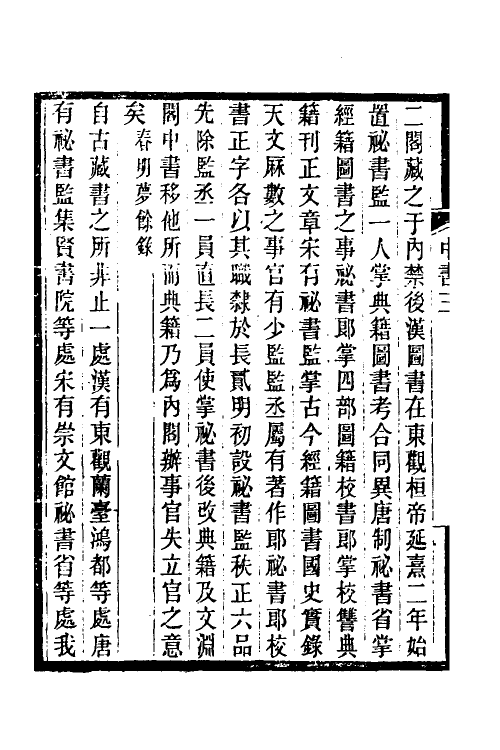 中書三
二閣藏之于內禁後漢圖書在東觀桓帝延熹二年始
置祕書監一人掌典籍圖書考合同異唐制祕書省掌
經籍圖書之事祕書郎掌四部圖籍校書郎掌校讐典
籍刊正文章宋有祕書監掌古今經籍圖書國史實錄
天文厤數之事官有少監監丞屬有著作郎祕書郎校
書正字各以其職隸於長貳明初設祕書監秩正六品
先除監丞一員直長二員使掌祕書後改典籍及文淵
閣中書移他所而典籍乃爲內閣辦事官失立官之意
矣春明夢餘錄
自古藏書之所非止一處漢有東觀蘭臺鴻都等處唐
有祕書監集賢書院等處宋有崇文館祕書省等處我